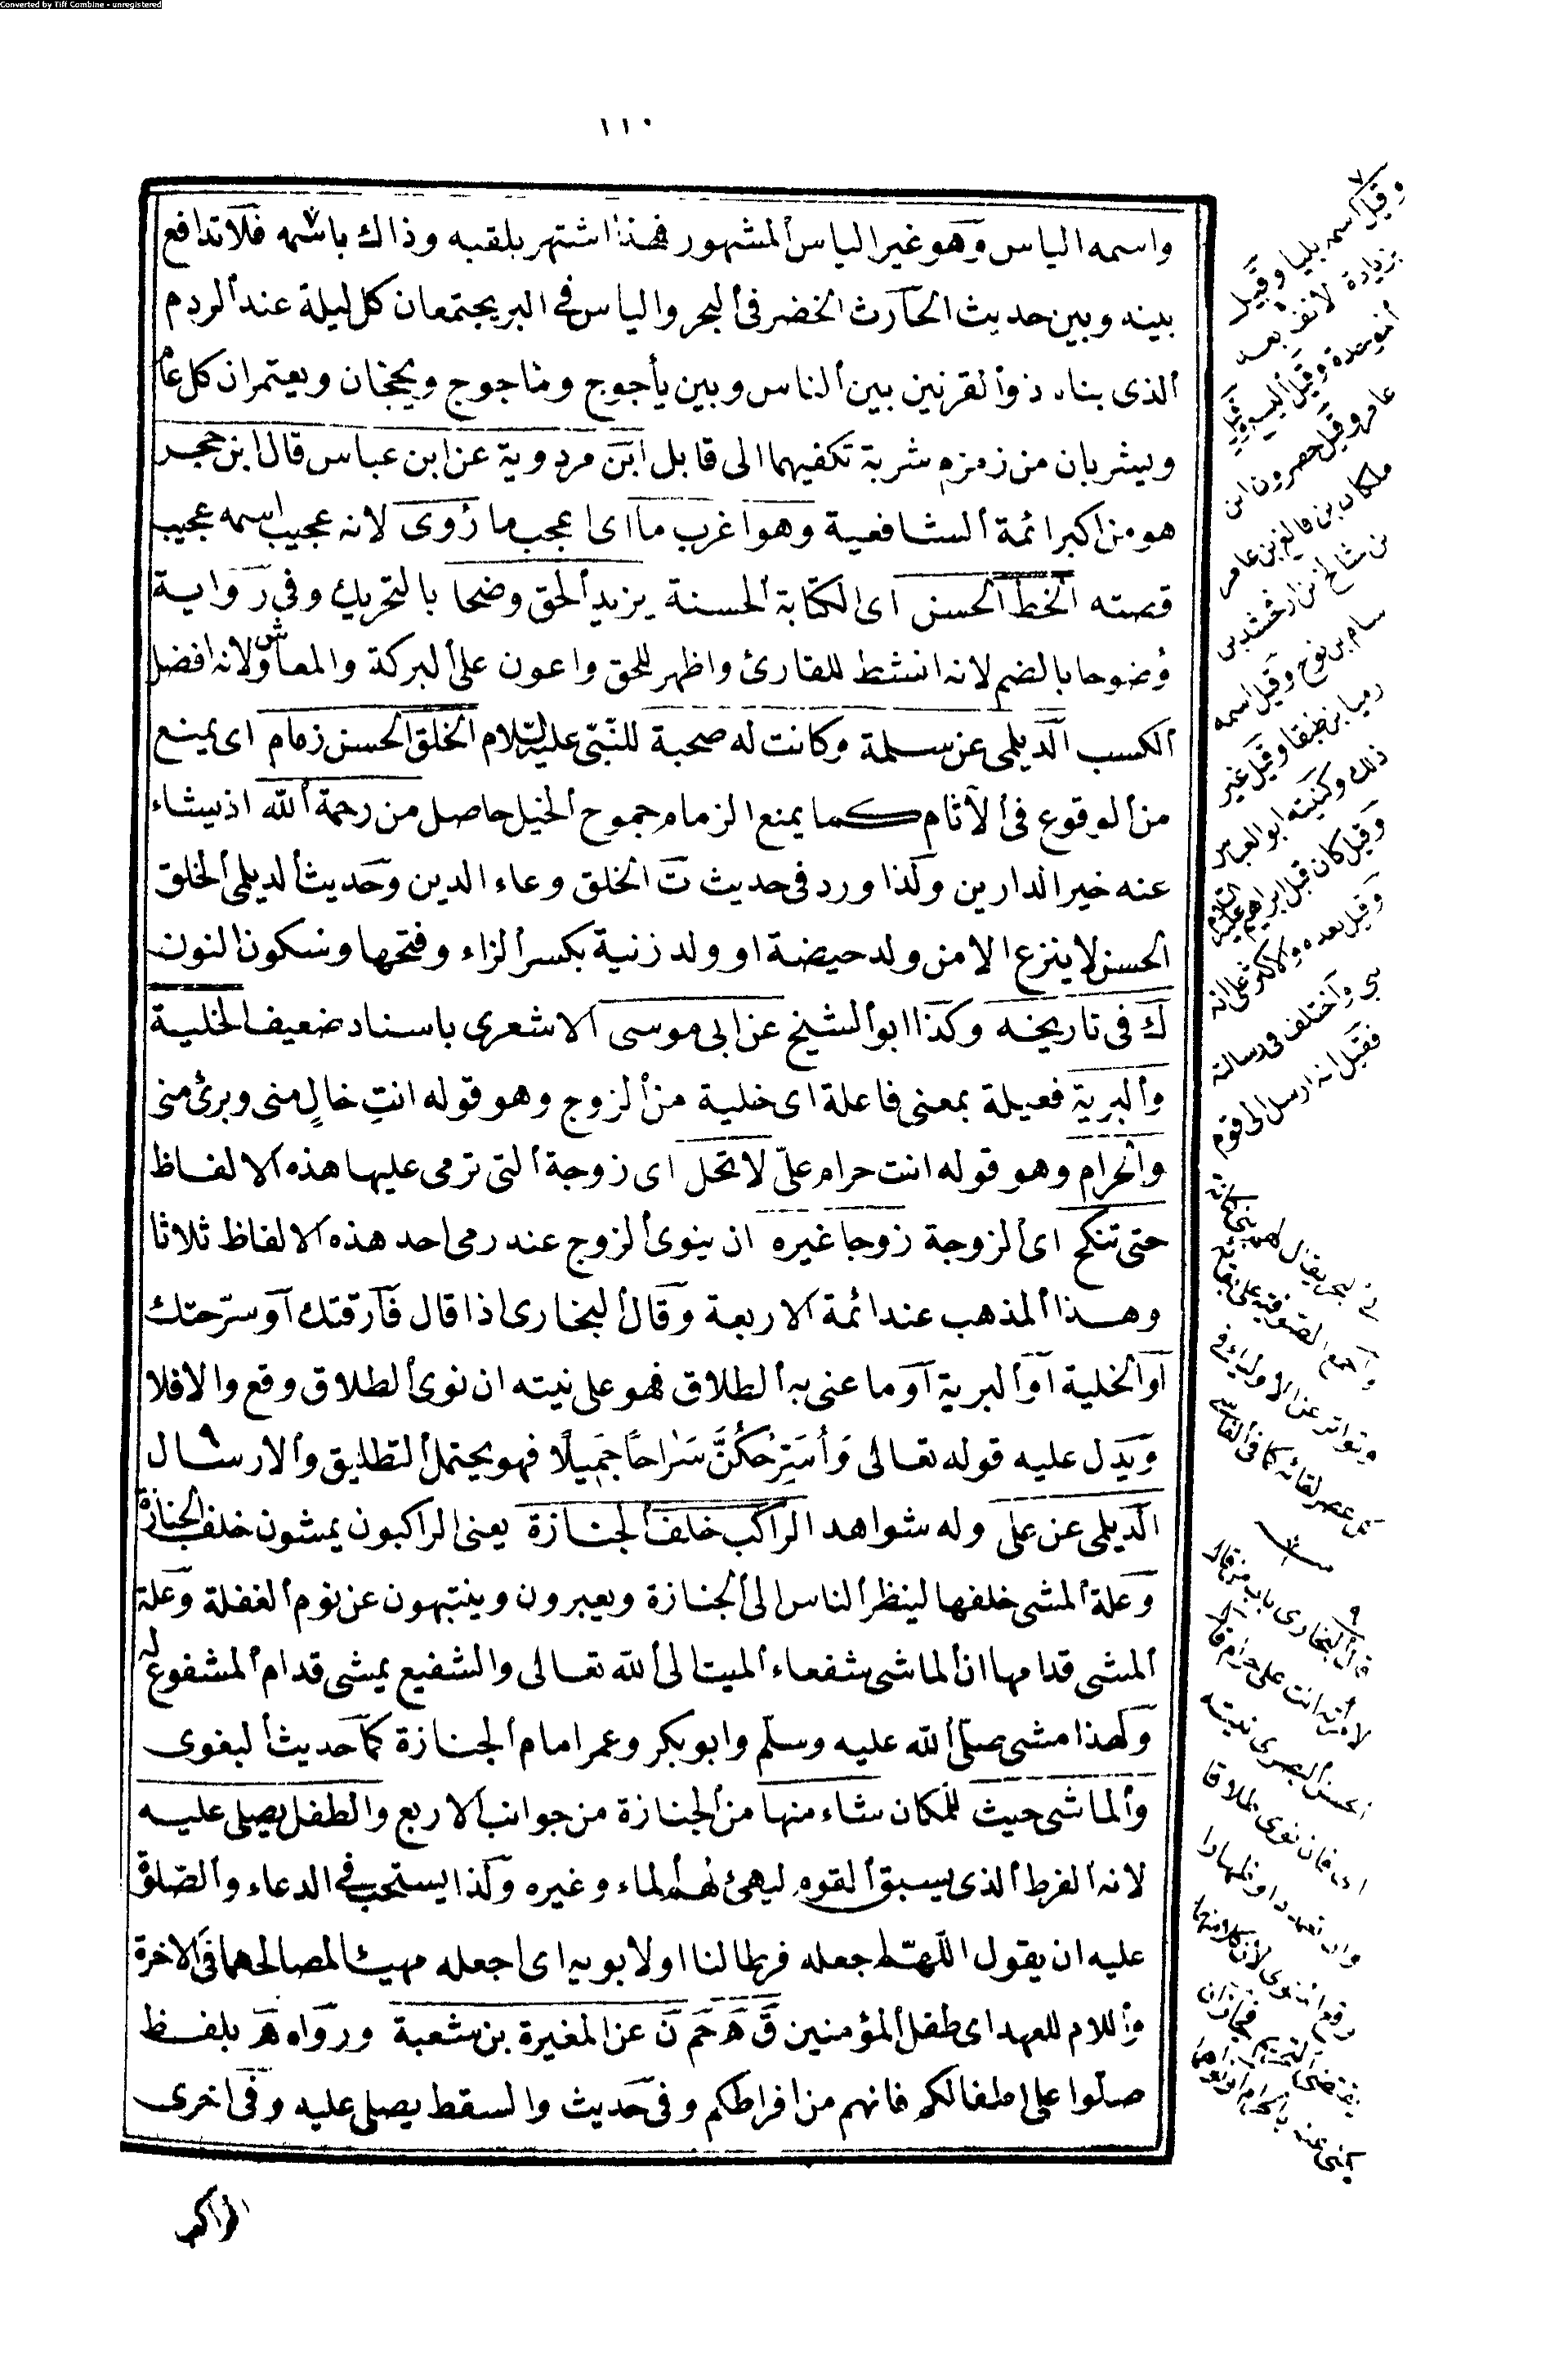 Converted by Tiff Combine - unregistered
١١٠
واسمه الياس وهو غير الياس المشهور فهذا اشتهر بلقبه وذاك باسمه فلا تدافع
بينه وبين حديث الحارث الخضر في البحر والياس في البر يجتمعان كل ليلة عند الردم
الذى بناه ذو القرنين بين الناس وبين يأجوج ومأجوج ويحجان ويعتمران كل عام
ويشربان من زمزم شربة تكفيهما الى قابل ابن مردوية عن ابن عباس قال ابن حجر
هو من اكبر ائمة الشافعية وهو اغرب ما اى اعجب ما روى لانه عجيب اسمه عجيب
قصته الخط الحسن اى الكتابة الحسنة يزيد الحق وضحا بالتحريك وفى رواية
وُضوحا بالضم لانه انشط للقارئ واظهر للحق واعون على البركة والمعاش ولانه افضل
الكسب الديلمى عن سلمة وكانت له صحبة للنبى عليه السلام الخلق الحسن زمام اى يمنع
من الوقوع فى الآثام كما يمنع الزمام جموح الخيل حاصل من رحمة الله اذ ييشاء
عنه خير الدارين وكذا ورد فى حديث ت الخلق وعاء الدين وحديث الديلمى الخلق
الحسن لا ينزع الا من ولد حيضة او ولد زنية بكسر الزاء وفتحها وسكون النون
ك فى تاريخه وكذا ابو الشيخ عن ابى موسى الاشعرى باسناد ضعيف الخلية
والبرية فعيلة بمعنى فاعلة اى خلية من الزوج وهو قوله انتِ خالٍ منى وبرئ منى
والحرام وهو قوله انت حرام علىّ لا تحل اى زوجة التى ترمى عليها هذه الالفاظ
حتى تنكح اى الزوجة زوجا غيره ان ينوى الزوج عند رمى احد هذه الالفاظ ثلاثا
وهذا المذهب عند ائمة الاربعة وقال البخارى اذا قال فارقتك او سرّحتك
او الخلية او البرية او ما عنى به الطلاق فهو على نيته ان نوى الطلاق وقع والا فلا
ويدل عليه قوله تعالى وَأُسَرِّحْكُنَّ سَرَاحًا جَمِيلًا ٩ فهو يحتمل التطليق والارسال
الديلمى عن على وله شواهد الراكب خلف الجنازة يعنى الراكبون يمشون خلف الجنازة
وعلة المشى خلفها لينظر الناس الى الجنازة ويعبرون وينتبهون عن نوم الغفلة وعلة
المشى قدامها ان الماشى شفعاء الميت الى الله تعالى والشفيع يمشى قدام المشفوع له
ولهذا مشى صلى الله عليه وسلم وابو بكر وعمر امام الجنازة كما حديث البغوى
والماشى حيث للمكان شاء منها من الجنازة من جوانب الاربع والطفل يصلى عليه
لانه الفرط الذى يسبق القوم ليهئ لهم الماء وغيره وكذا يستحب فى الدعاء والصلوة
عليه ان يقول اللهم اجعله فرطا لنا او لابويه اى اجعله مهيئا لمصالحهما فى الاخرة
واللام للعهد اى طفل المؤمنين ق ه حم ن عن المغيرة بن شعبة ورواه ه بلفظ
صلّوا على اطفالكم فانهم من افراطكم وفى حديث والسقط يصلى عليه وفى اخرى
الراكب
٧
وقيل اسمه بليا وقيل
عامر وقيل حضرون ابن
ملكان بن فالغ بن عامر
بن شالخ بن ارفخشد بن
سام بن نوح وقيل اسمه
ذلك وكنيته ابو العباس
وقيل كان قبل ابراهيم عليه السلام
وقيل بعده والاكثر على انه
نبى واختلف فى رسالته
فقيل انه ارسل الى قوم
٩
قال البخارى باب من قال
لامرأته انت على حرام قال
الحسن البصرى نيته